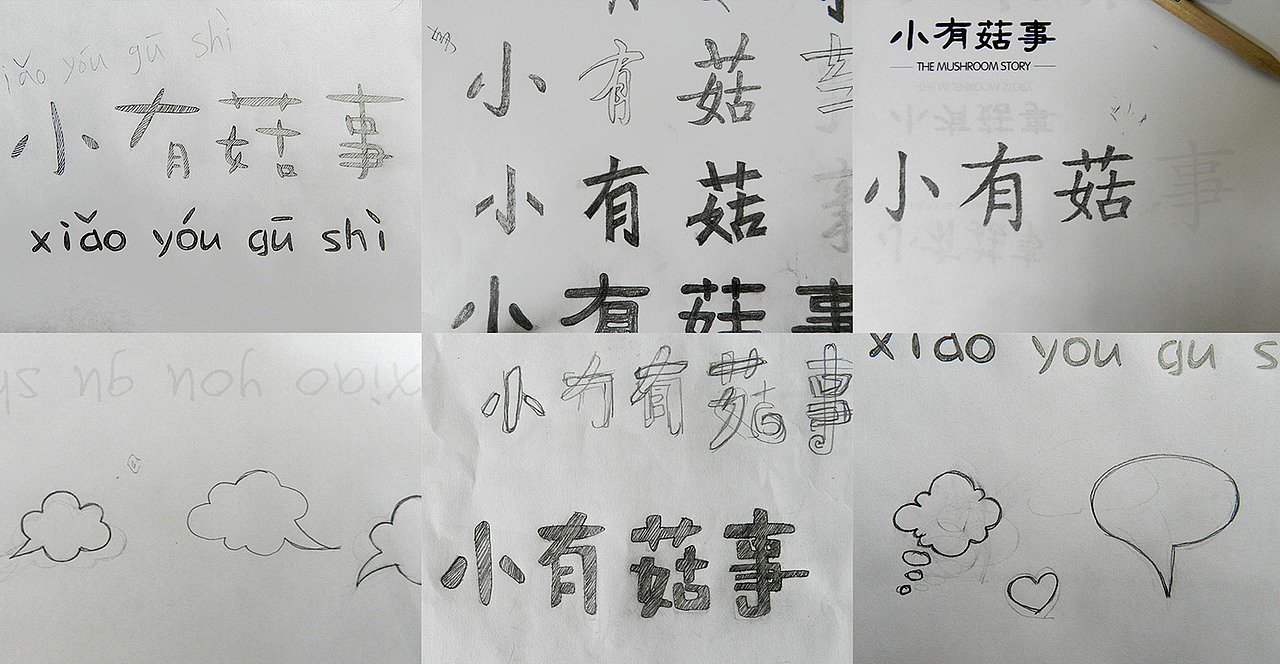 xiǎo yóu gū shì
小有菇事
xiǎo yóu gū shì
小有菇
小有菇
小有菇事
小有菇事
THE MUSHROOM STORY
小有菇事
小有菇事
小有菇事
xiao you gu s